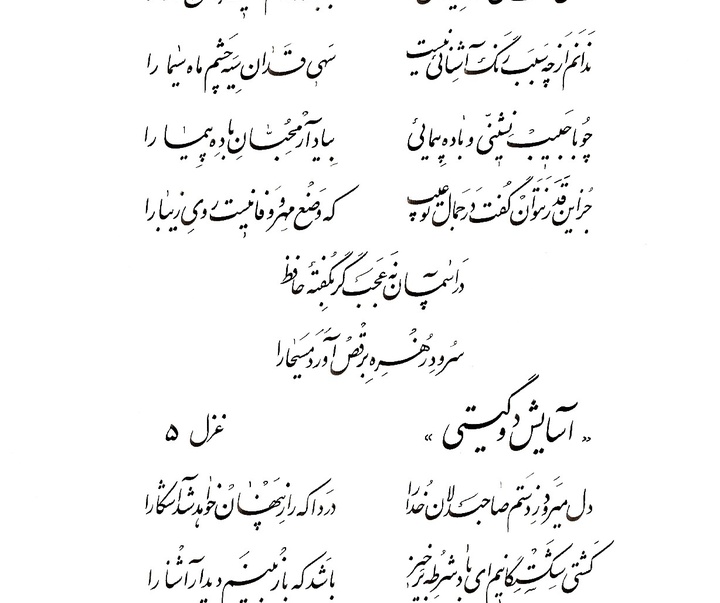 ندانم از چه سبب رنگ آشنائی نیست سهی قدان سیه چشم ماه سیما را
چو با حبیب نشینی و باده پیمائی بیاد آر محبان باده پیما را
جز این قدر نتوان گفت در جمال تو عیب که وضع مهر و وفا نیست روی زیبا را
در آسمان نه عجب گر بگفته حافظ
سرود زهره برقص آورد مسیحا را
« آسایش دو گیتی » غزل ۵
دل میرود ز دستم صاحبدلان خدا را دردا که راز پنهان خواهد شد آشکارا
کشتی شکستگانیم ای باد شرطه برخیز باشد که باز بینیم دیدار آشنا را